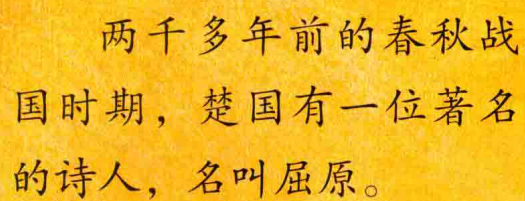 两千多年前的春秋战
国时期，楚国有一位著名
的诗人，名叫屈原。